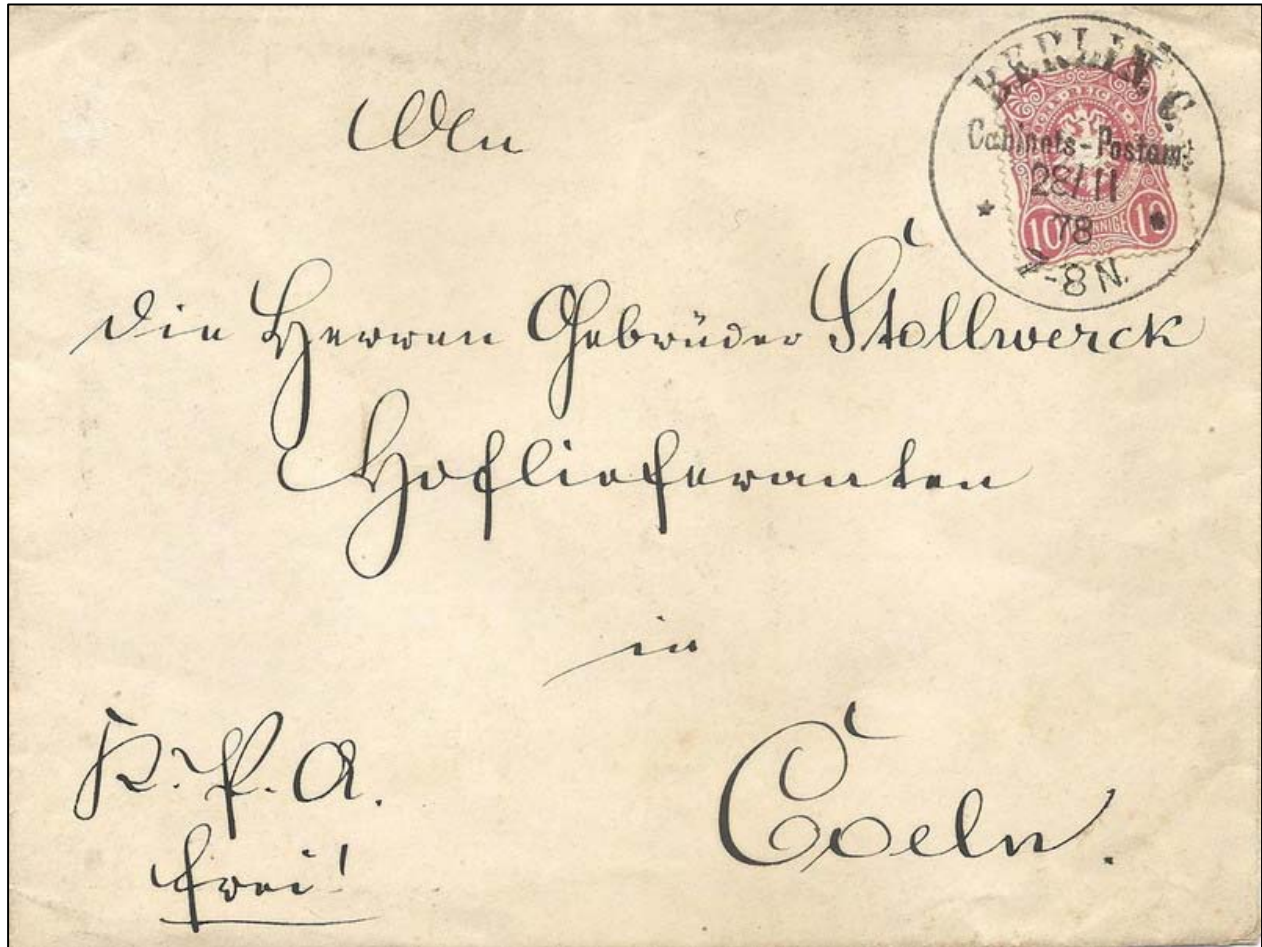 BERLIN, C.
Cabinets-Postamt
28/11
78
-8 N.
REICHS-
10 PFENNIGE 10
An
die Herren Gebrüder Stollwerck
Hoflieferanten
in
K. P. A.
frei!
Coeln.